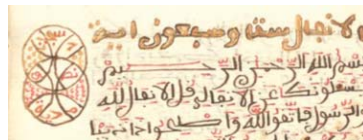 الانفال ستا وسبعون اية
بسم الله الرحمن الرحيم
يسئلونك عن الانفال قل الانفال لله
والرسول فاتقوا الله واصلحوا ذا ت بينكم